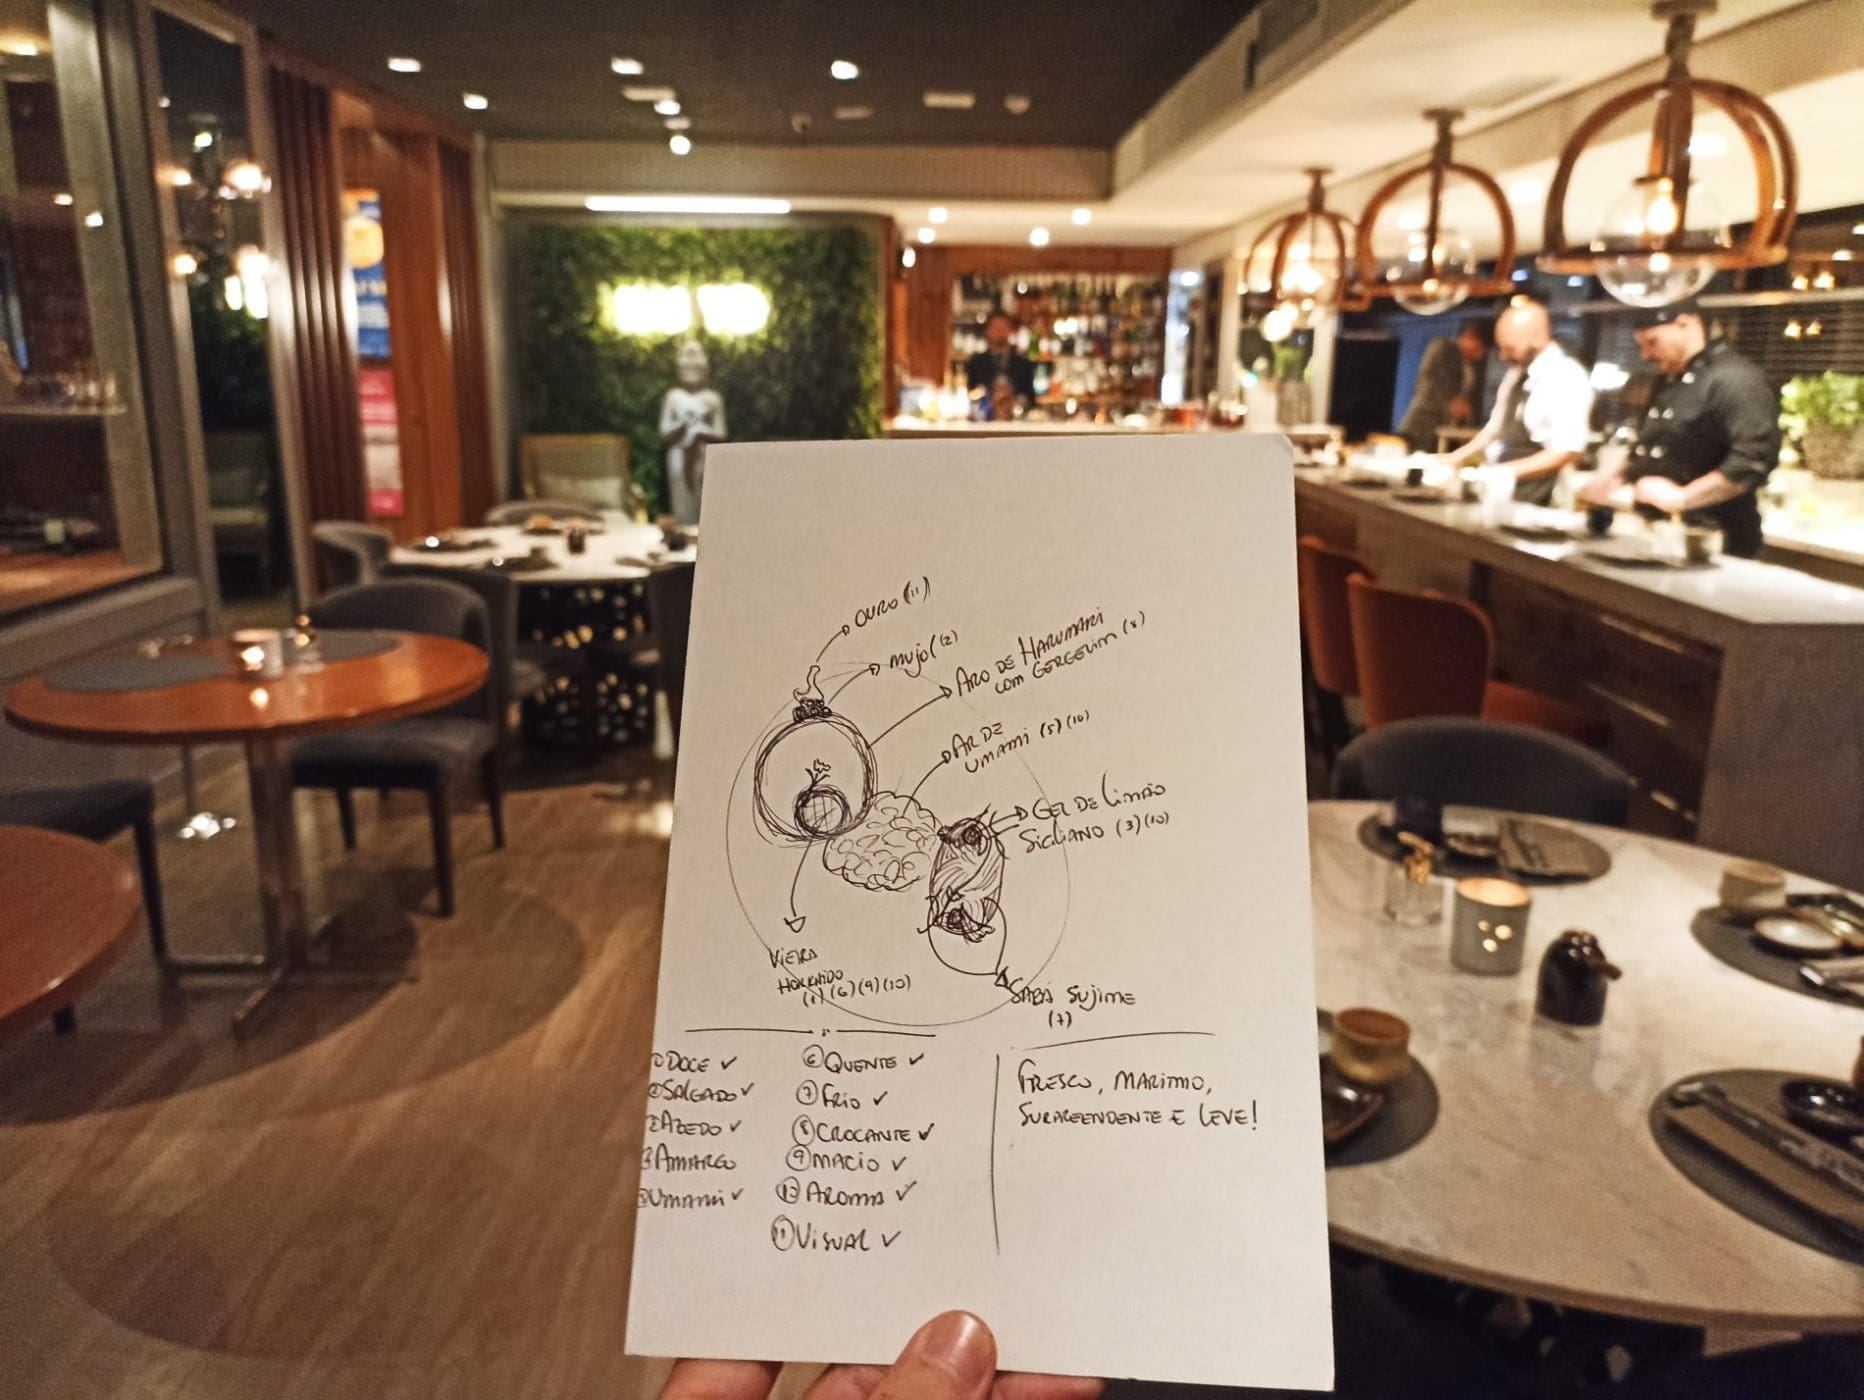 OURO (11)
MUJOL (2)
ARO DE HARUMAKI
COM GERGELIM (8)
AR DE
UMAMI (5) (10)
GEL DE LIMÃO
SICILIANO (3) (10)
VIEIRA
HOKKAIDO
(1) (6) (9) (10)
SABÁ SUJIME
(7)
① DOCE ✓
② SALGADO ✓
③ AZEDO ✓
④ AMARGO
⑤ UMAMI ✓
⑥ QUENTE ✓
⑦ FRIO ✓
⑧ CROCANTE ✓
⑨ MACIO ✓
⑩ AROMA ✓
⑪ VISUAL ✓
FRESCO, MARITMO,
SURPREENDENTE E LEVE!